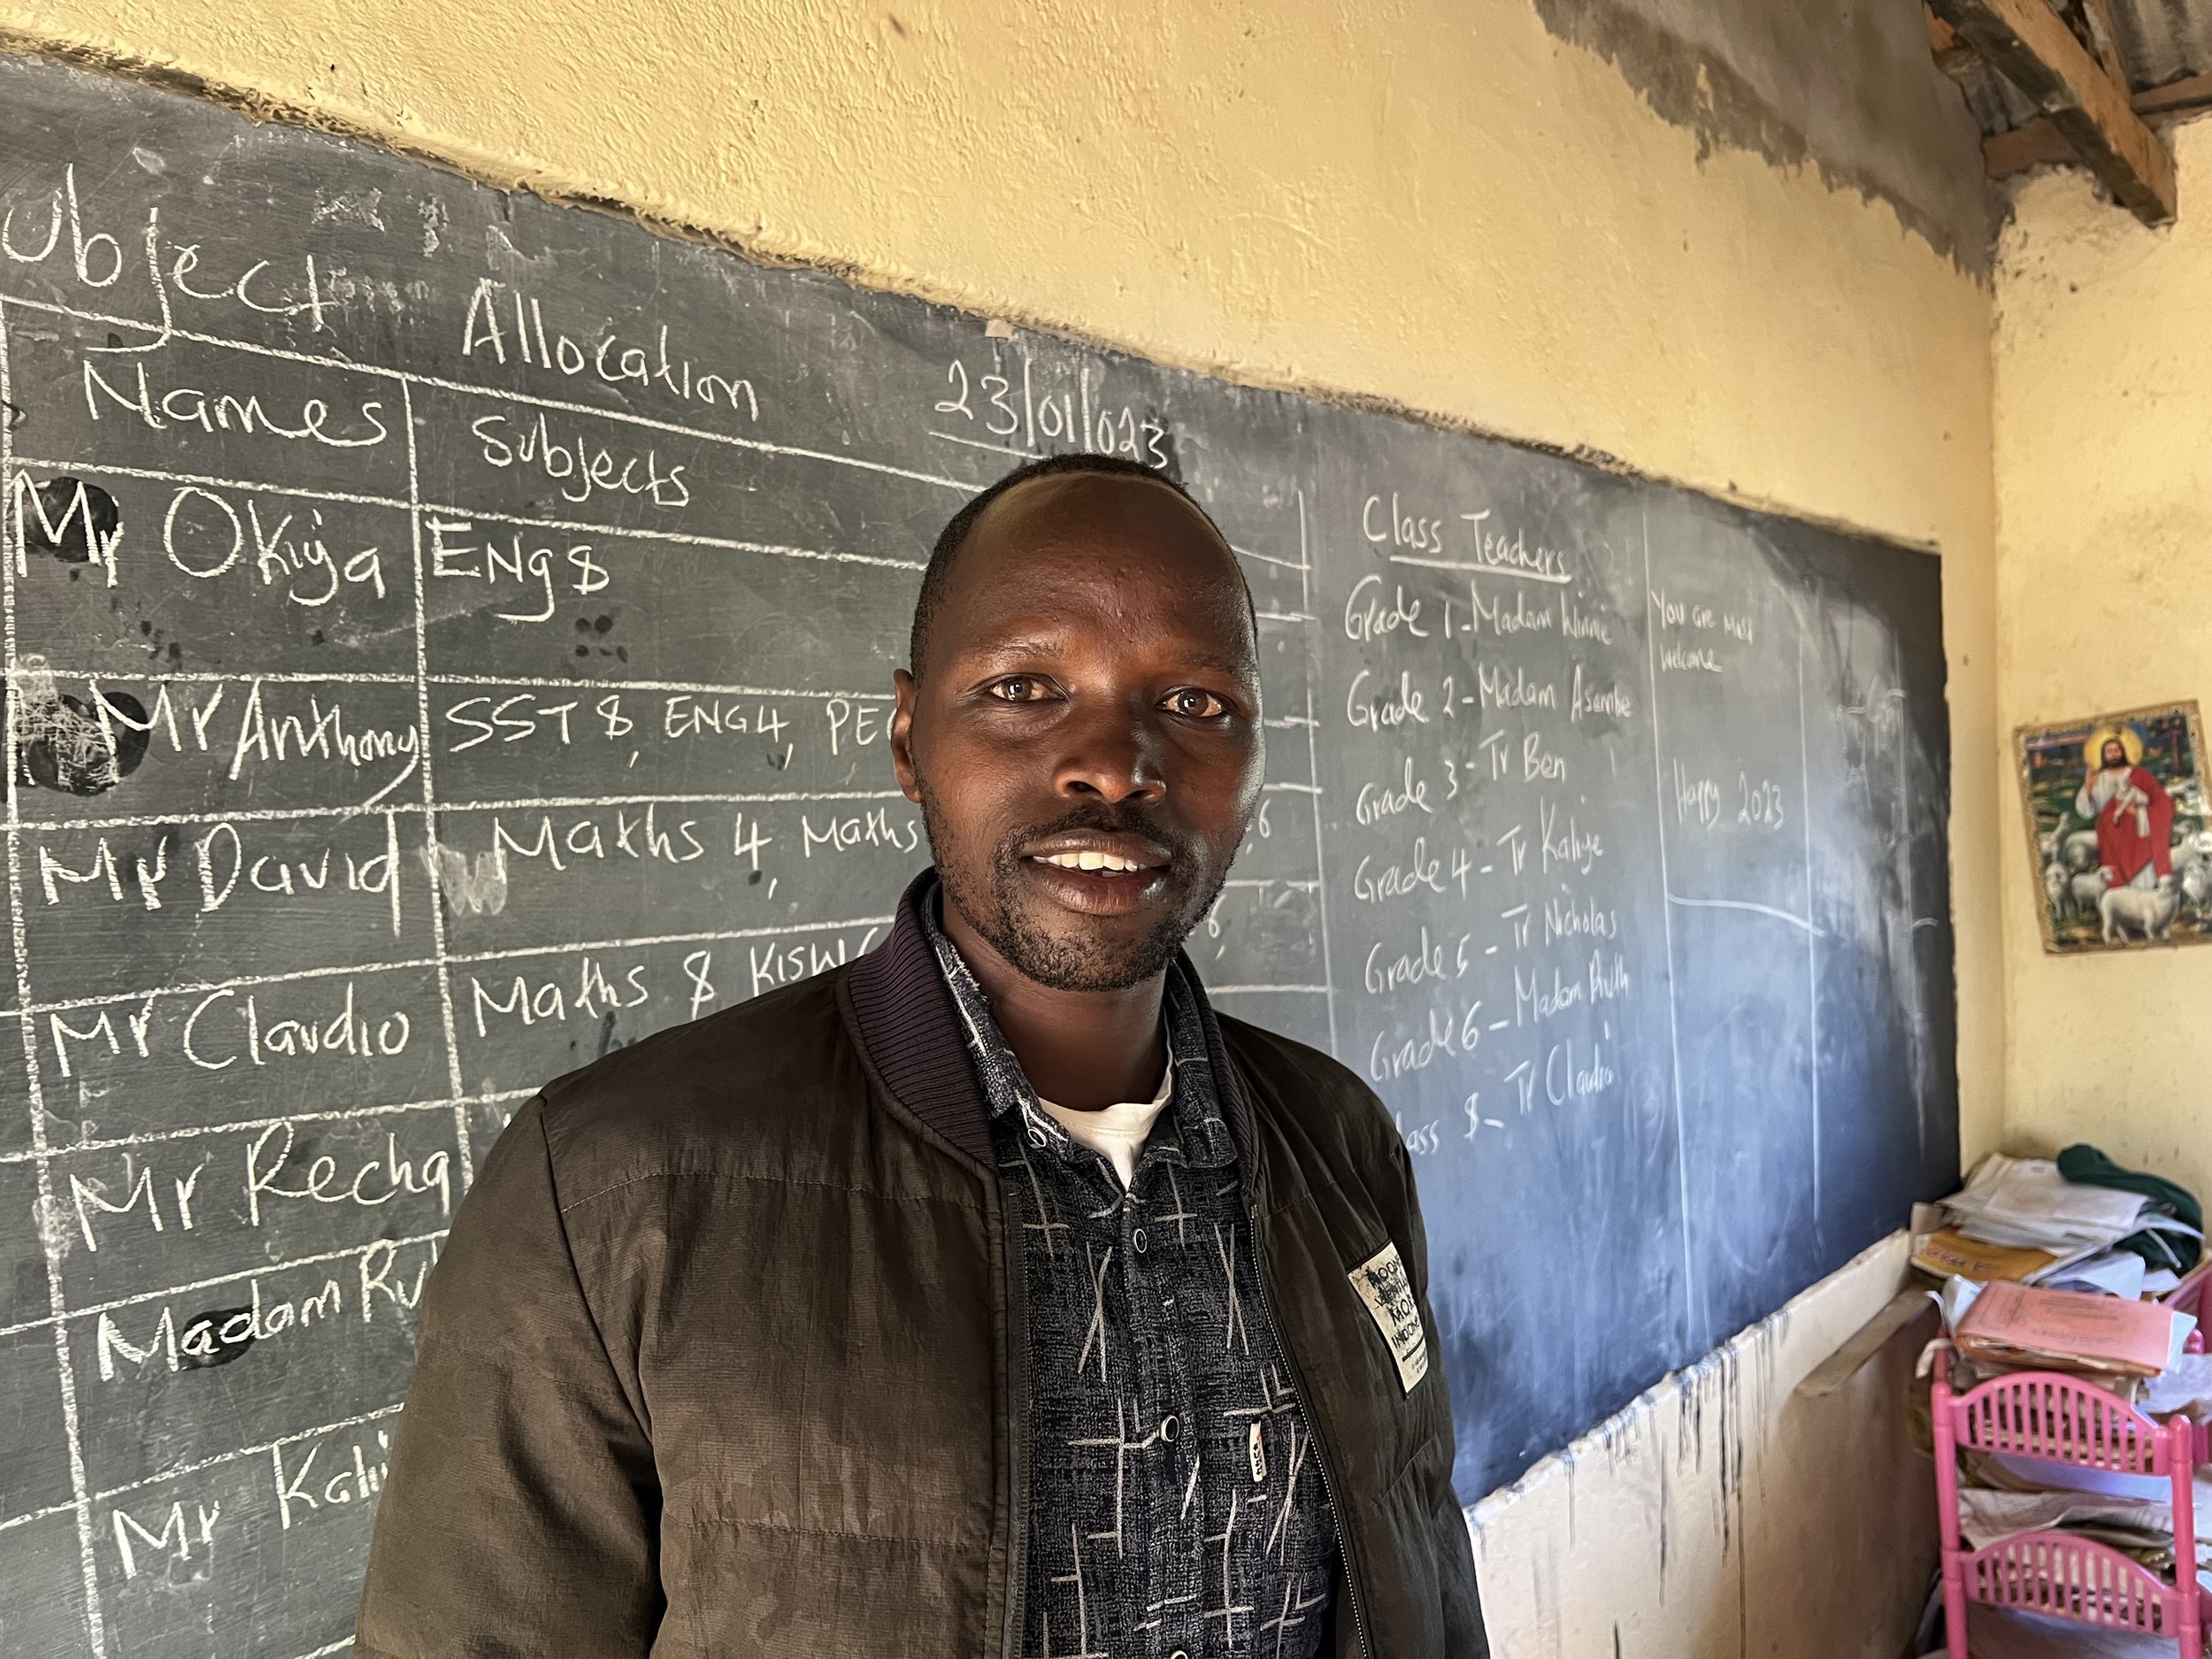 ubject Allocation 23/01/023
Names Subjects
Mr Okiya ENG 8
Mr Anthony SST 8, ENG 4, PE
Mr David Maths 4, Maths ,6
Mr Claudio Maths 8 KISW 8,
Mr Recha
Madam Ru
Mr Kali
Class Teachers
Grade 1 - Madam Winnie
Grade 2 - Madam Asembe
Grade 3 - Tr Ben
Grade 4 - Tr Kaliye
Grade 5 - Tr Nicholas
Grade 6 - Madam Ruth
lass 8 - Tr Claudio
You are most
welcome
Happy 2023